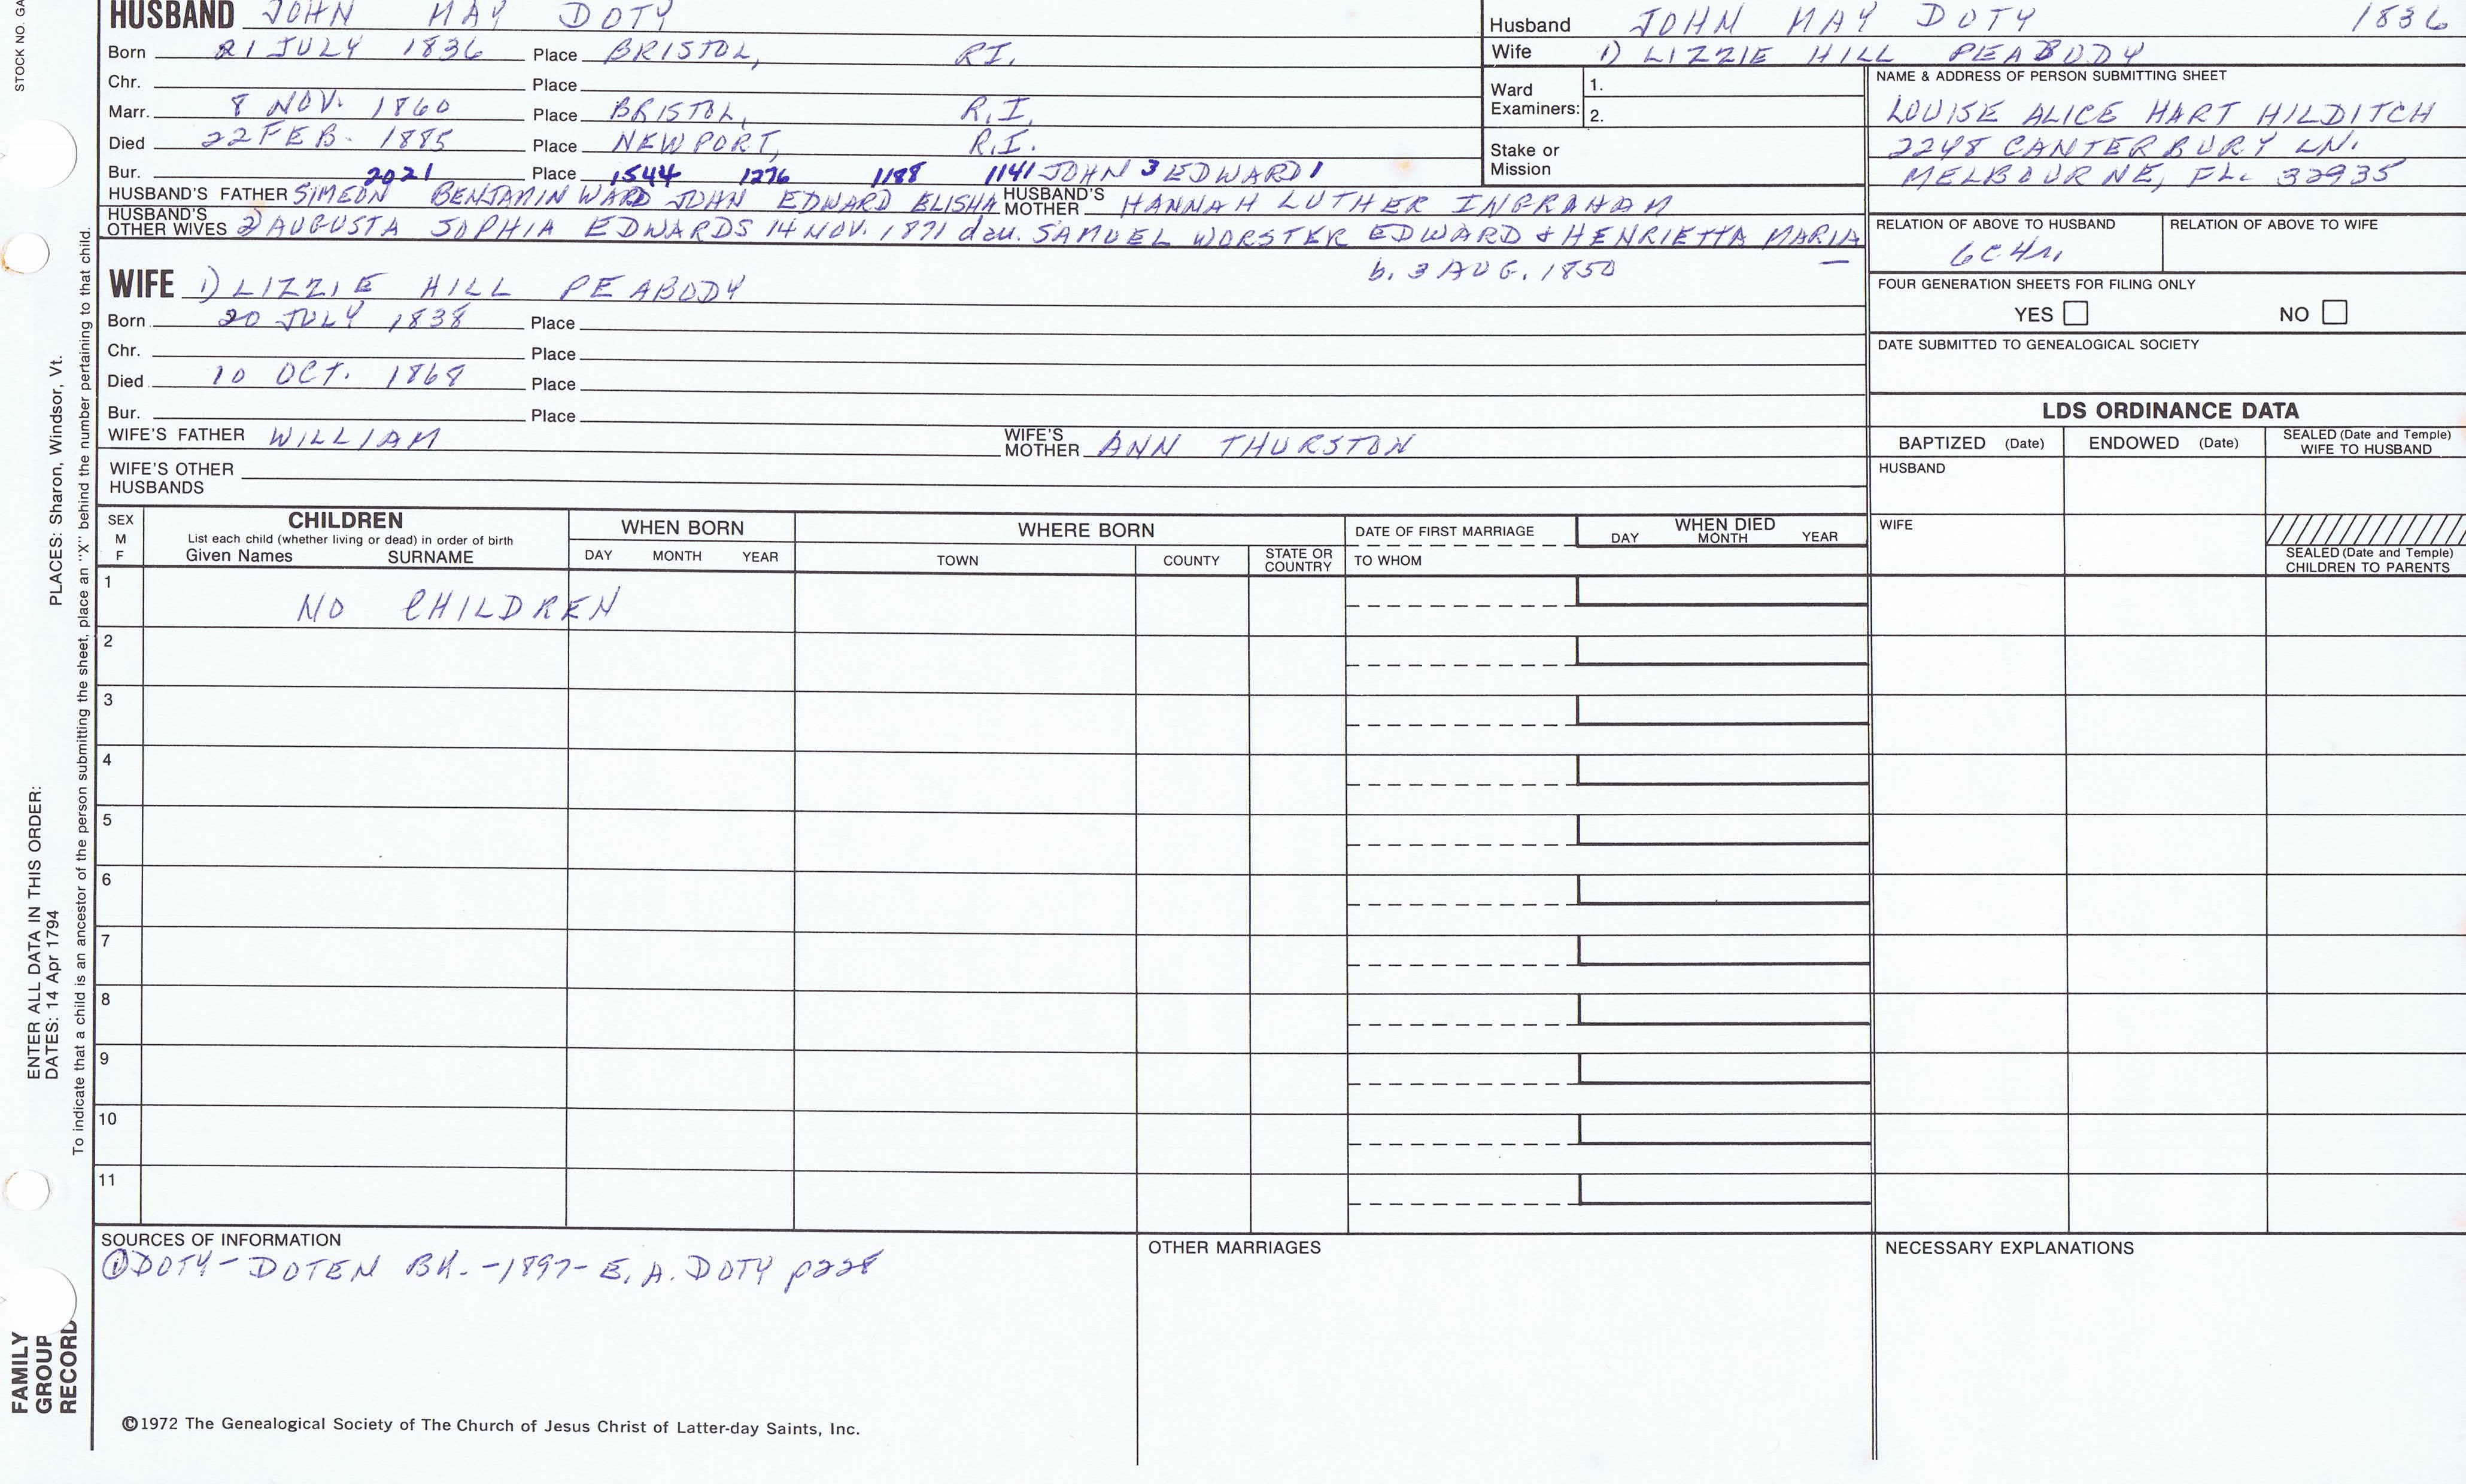 STOCK NO. GA
HUSBAND JOHN MAY DOTY
Born 21 JULY 1836 Place BRISTOL, RI.
Chr. Place
Marr. 8 NOV. 1860 Place BRISTOL, R.I.
Died 22 FEB. 1885 Place NEWPORT, R.I.
Bur. 2021 Place 1544 1276 1188 1141 JOHN 3 EDWARD 1
HUSBAND'S FATHER SIMEON BENJAMIN WARD JOHN EDWARD ELISHA HUSBAND'S MOTHER HANNAH LUTHER INGRAHAM
HUSBAND'S OTHER WIVES 2) AUGUSTA SOPHIA EDWARDS 14 NOV. 1871 dau. SAMUEL WORSTER EDWARD & HENRIETTA MARIA —
b. 3 AUG. 1850
WIFE 1) LIZZIE HILL PEABODY
Born 20 JULY 1838 Place
Chr. Place
Died 10 OCT. 1868 Place
Bur. Place
WIFE'S FATHER WILLIAM WIFE'S MOTHER ANN THURSTON
WIFE'S OTHER HUSBANDS
Husband JOHN MAY DOTY 1836
Wife 1) LIZZIE HILL PEABODY
Ward Examiners: 1.
2.
Stake or Mission
NAME & ADDRESS OF PERSON SUBMITTING SHEET
LOUISE ALICE HART HILDITCH
2248 CANTERBURY LN.
MELBOURNE, FL. 32935
RELATION OF ABOVE TO HUSBAND RELATION OF ABOVE TO WIFE
6C4r
FOUR GENERATION SHEETS FOR FILING ONLY
YES NO
DATE SUBMITTED TO GENEALOGICAL SOCIETY
LDS ORDINANCE DATA
BAPTIZED (Date) ENDOWED (Date) SEALED (Date and Temple) WIFE TO HUSBAND
HUSBAND
WIFE
SEALED (Date and Temple) CHILDREN TO PARENTS
SEX M F
CHILDREN
List each child (whether living or dead) in order of birth
Given Names SURNAME
WHEN BORN
DAY MONTH YEAR
WHERE BORN
TOWN COUNTY STATE OR COUNTRY
DATE OF FIRST MARRIAGE
TO WHOM
WHEN DIED
DAY MONTH YEAR
1
NO CHILDREN
2
3
4
5
6
7
8
9
10
11
SOURCES OF INFORMATION
① DOTY - DOTEN BK. - 1897 - E. A. DOTY p228
OTHER MARRIAGES
NECESSARY EXPLANATIONS
©1972 The Genealogical Society of The Church of Jesus Christ of Latter-day Saints, Inc.
FAMILY GROUP RECORD
ENTER ALL DATA IN THIS ORDER:
DATES: 14 Apr 1794
PLACES: Sharon, Windsor, Vt.
To indicate that a child is an ancestor of the person submitting the sheet, place an "X" behind the number pertaining to that child.